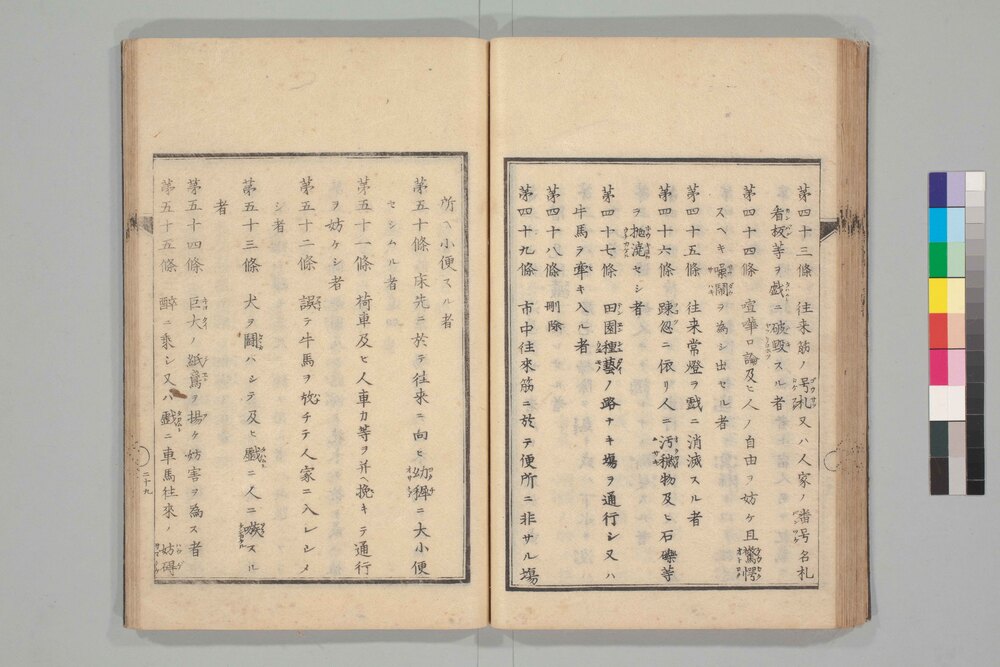 第四十三條 往来筋ノ号札又ハ人家ノ番号名札
看板等ヲ戯ニ破毀スル者
第四十四條 喧嘩口論及ヒ人ノ自由ヲ妨ケ且驚愕
スヘキ噪閙ヲ為シ出セル者
第四十五條 往来常燈ヲ戯ニ消滅スル者
第四十六條 疎忽ニ依リ人ニ汚穢物及ヒ石礫等
ヲ抛澆セシ者
第四十七條 田園種藝ノ路ナキ場ヲ通行シ又ハ
牛馬ヲ牽キ入ル者
第四十八條 刪除
第四十九條 市中往來筋ニ於テ便所ニ非サル場
所ヘ小便スル者
第五十條 床先ニ於テ往來ニ向ヒ幼稺ニ大小便
セシムル者
第五十一條 荷車及ヒ人車力等ヲ并ヘ挽キテ通行
ヲ妨ケシ者
第五十二條 誤テ牛馬ヲ放チテ人家ニ入レシメ
シ者
第五十三條 犬ヲ闘ハシテ及ヒ戯ニ人ニ嗾スル
者
第五十四條 巨大ノ紙鳶ヲ揚ケ妨害ヲ為ス者
第五十五條 酔ニ乘シ又ハ戯ニ車馬往來ノ妨碍
二十九